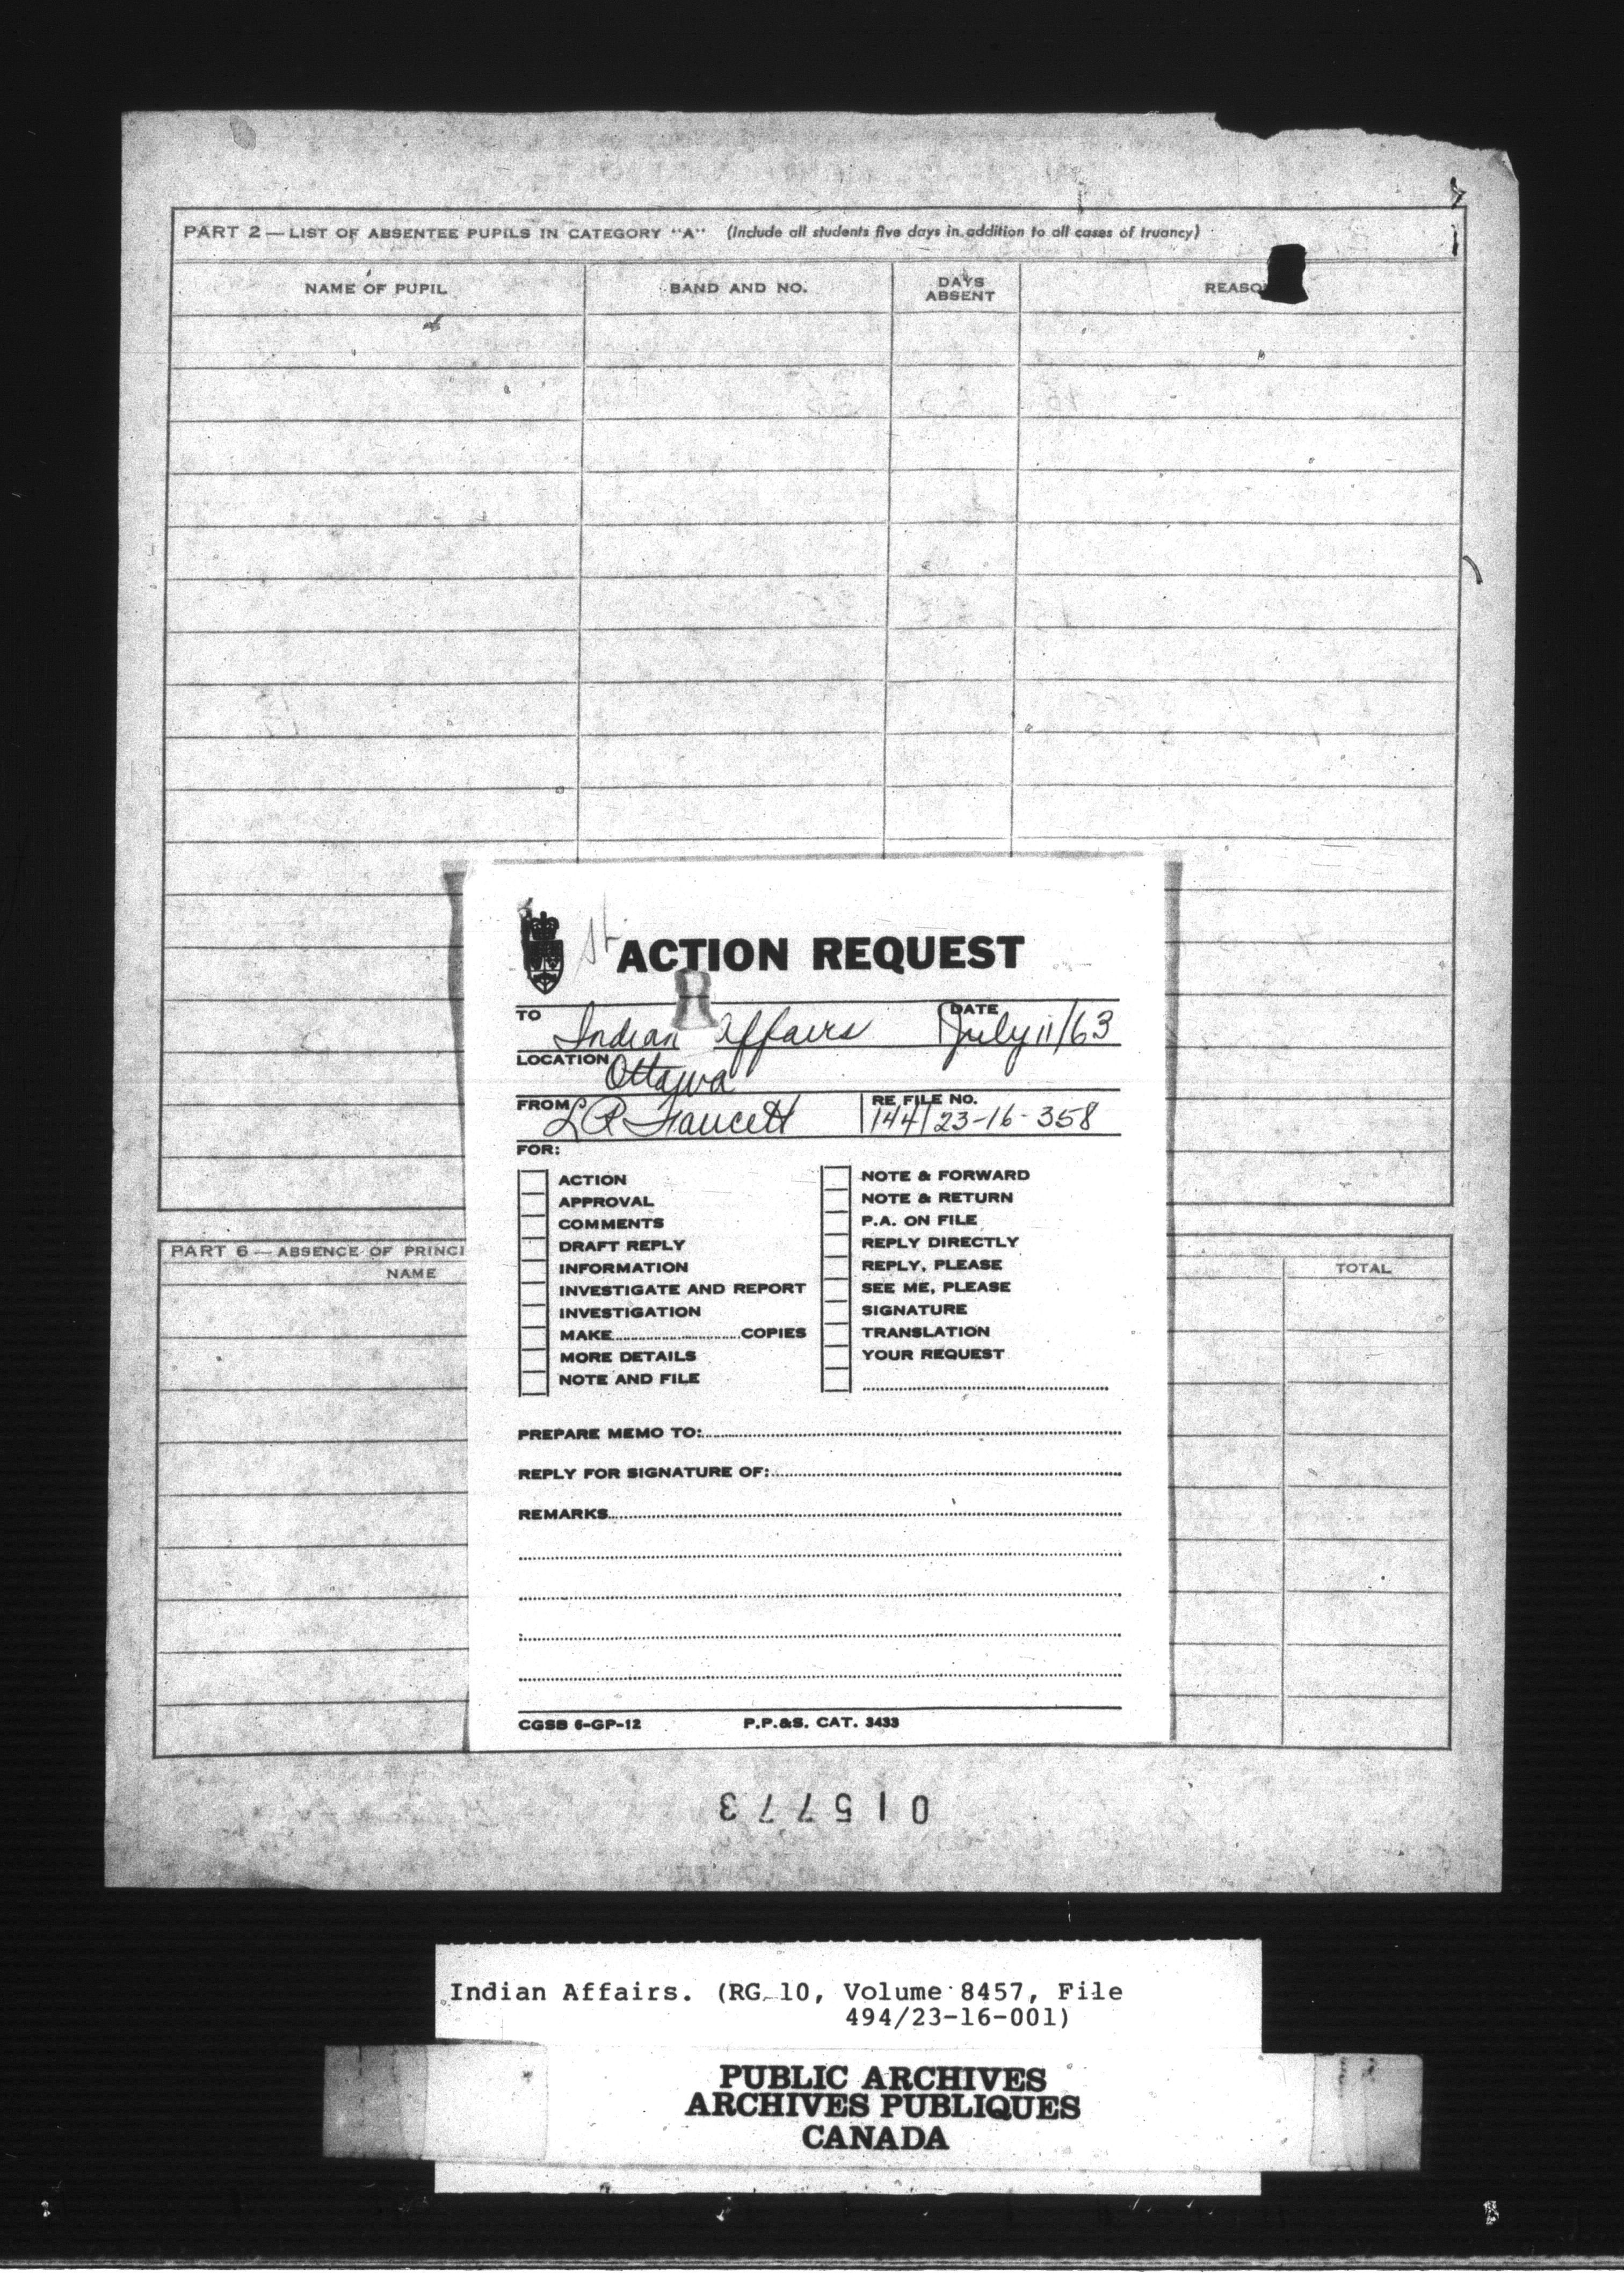 PART 2 — LIST OF ABSENTEE PUPILS IN CATEGORY "A" (Include all students five days in addition to all cases of truancy)
NAME OF PUPIL BAND AND NO. DAYS ABSENT REASO
ACTION REQUEST
TO Indian Affairs DATE July 11/63
LOCATION Ottawa
FROM L R Faucett RE FILE NO. 144/23-16-358
FOR:
ACTION
APPROVAL
COMMENTS
DRAFT REPLY
INFORMATION
INVESTIGATE AND REPORT
INVESTIGATION
MAKE..............................COPIES
MORE DETAILS
NOTE AND FILE
NOTE & FORWARD
NOTE & RETURN
P.A. ON FILE
REPLY DIRECTLY
REPLY, PLEASE
SEE ME, PLEASE
SIGNATURE
TRANSLATION
YOUR REQUEST
PREPARE MEMO TO:
REPLY FOR SIGNATURE OF:
REMARKS
CGSB 6-GP-12 P.P.&S. CAT. 3433
PART 6 — ABSENCE OF PRINCI
NAME TOTAL
015773
Indian Affairs. (RG 10, Volume 8457, File
494/23-16-001)
PUBLIC ARCHIVES
ARCHIVES PUBLIQUES
CANADA